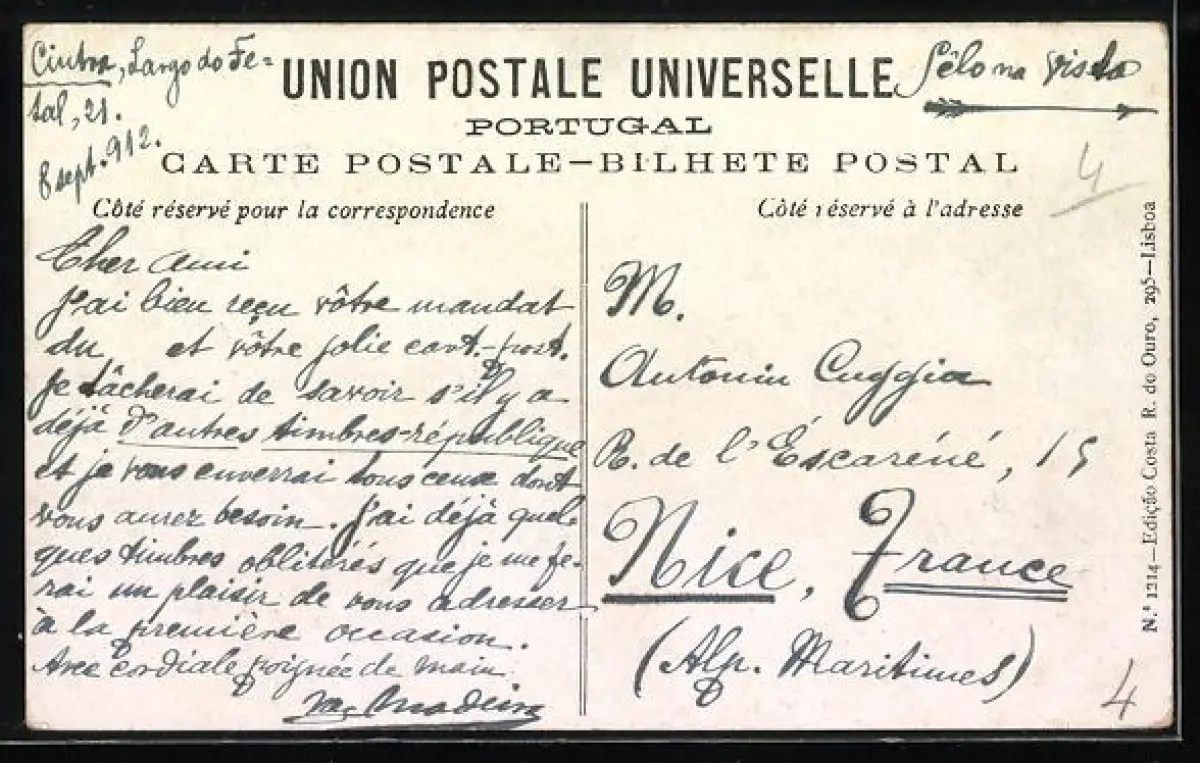 Cintra, Largo do Fe-
tal, 21.
8 sept. 912.
UNION POSTALE UNIVERSELLE
Sêlo na vista
PORTUGAL
CARTE POSTALE—BILHETE POSTAL
4
Côté réservé pour la correspondence
Côté réservé à l'adresse
Cher Ami
J'ai bien reçu vôtre mandat
du et vôtre jolie cart.-post.
Je tâcherai de savoir s'il y a
déjà d'autres timbres-république
et je vous enverrai tous ceux dont
vous aurez besoin. J'ai déjà quel-
ques timbres oblitérés que je me fe-
rai un plaisir de vous adresser
à la première occasion.
Avec cordiale poignée de main
M.
Antonin Cuggia
R. de l'Éscaréné, 15
Nice, France
(Alp. Maritimes)
4
N.º 1214—Edição Costa R. do Ouro, 295—Lisboa